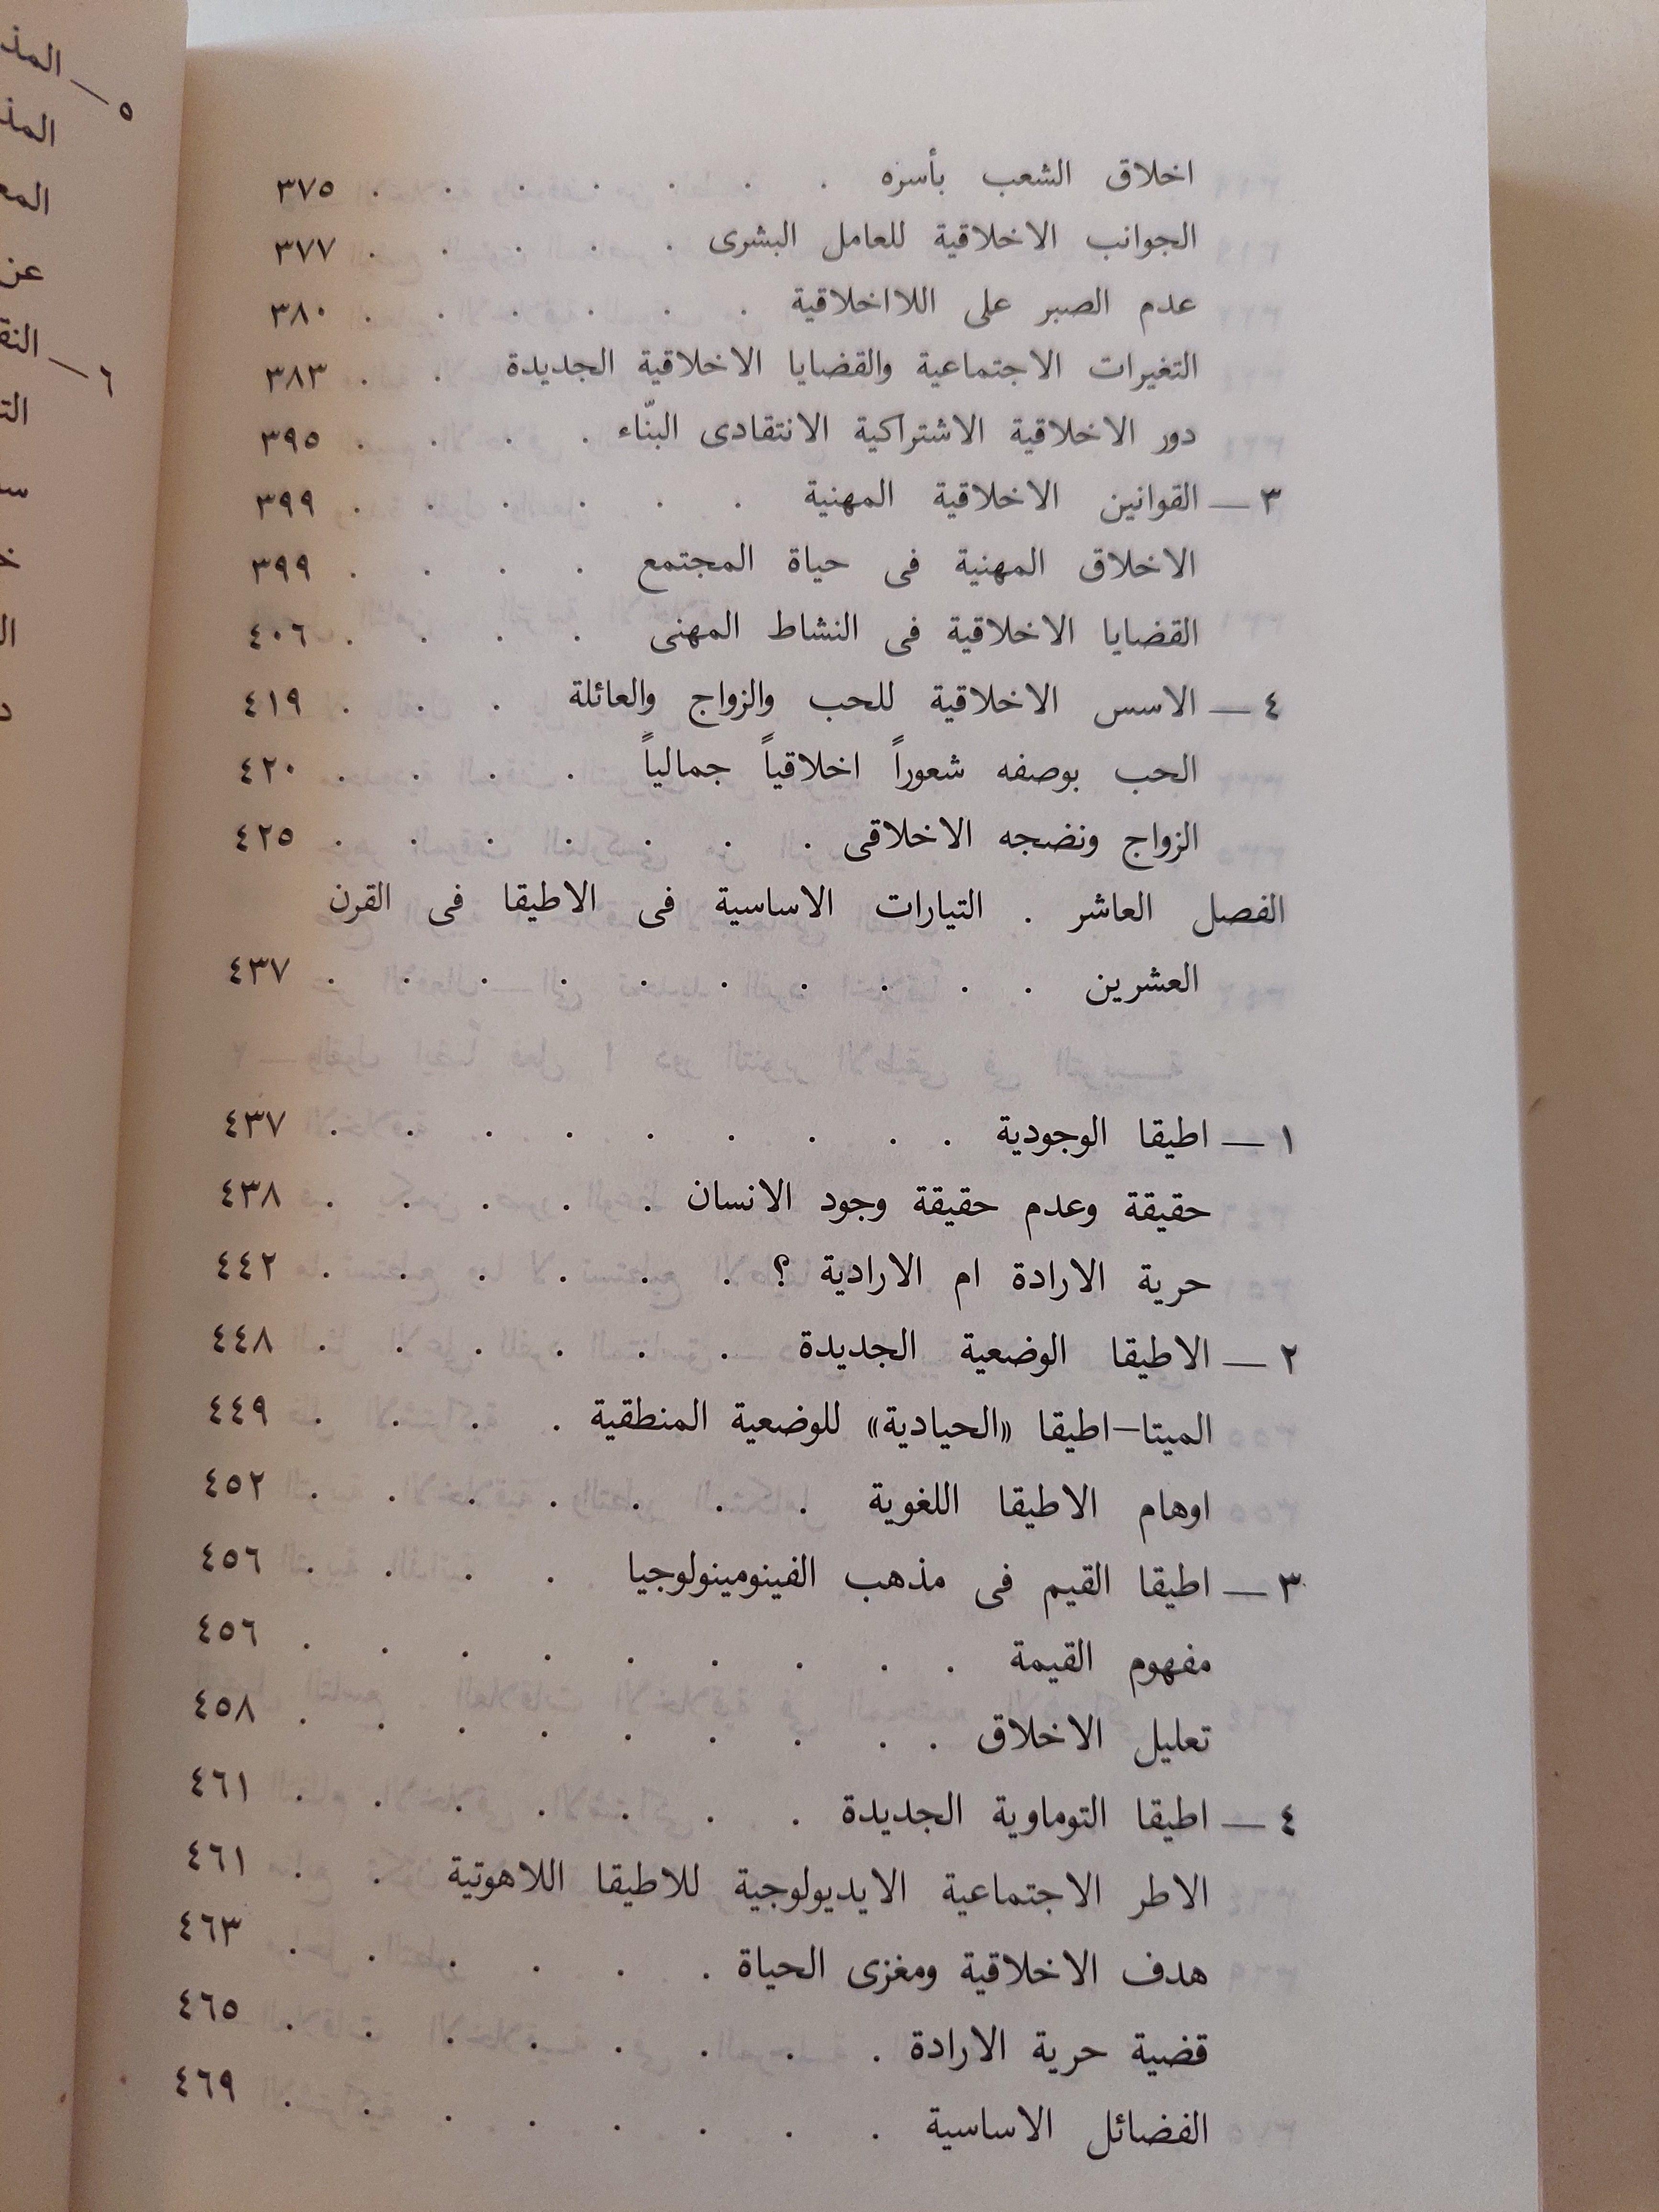 اخلاق الشعب بأسره . . . . . . . ٣٧٥
الجوانب الاخلاقية للعامل البشرى . . . . . ٣٧٧
عدم الصبر على اللااخلاقية . . . . . . ٣٨٠
التغيرات الاجتماعية والقضايا الاخلاقية الجديدة . . ٣٨٣
دور الاخلاقية الاشتراكية الانتقادى البنّاء . . . . ٣٩٥
٣ — القوانين الاخلاقية المهنية . . . . . . ٣٩٩
الاخلاق المهنية فى حياة المجتمع . . . . ٣٩٩
القضايا الاخلاقية فى النشاط المهنى . . . . ٤٠٦
٤ — الاسس الاخلاقية للحب والزواج والعائلة . . . ٤١٩
الحب بوصفه شعوراً اخلاقياً جمالياً . . . . ٤٢٠
الزواج ونضجه الاخلاقى . . . . . . . ٤٢٥
الفصل العاشر . التيارات الاساسية فى الاطيقا فى القرن
العشرين . . . . . . . . . . ٤٣٧
١ — اطيقا الوجودية . . . . . . . . . ٤٣٧
حقيقة وعدم حقيقة وجود الانسان . . . . . ٤٣٨
حرية الارادة ام الارادية ؟ . . . . . . ٤٤٢
٢ — الاطيقا الوضعية الجديدة . . . . . . ٤٤٨
الميتا—اطيقا «الحيادية» للوضعية المنطقية . . . . ٤٤٩
اوهام الاطيقا اللغوية . . . . . . . ٤٥٢
٣ — اطيقا القيم فى مذهب الفينومينولوجيا . . . . ٤٥٦
مفهوم القيمة . . . . . . . . . ٤٥٦
تعليل الاخلاق . . . . . . . . . ٤٥٨
٤ — اطيقا التوماوية الجديدة . . . . . . . ٤٦١
الاطر الاجتماعية الايديولوجية للاطيقا اللاهوتية . . ٤٦١
هدف الاخلاقية ومغزى الحياة . . . . . . ٤٦٣
قضية حرية الارادة . . . . . . . . ٤٦٥
الفضائل الاساسية . . . . . . . . ٤٦٩